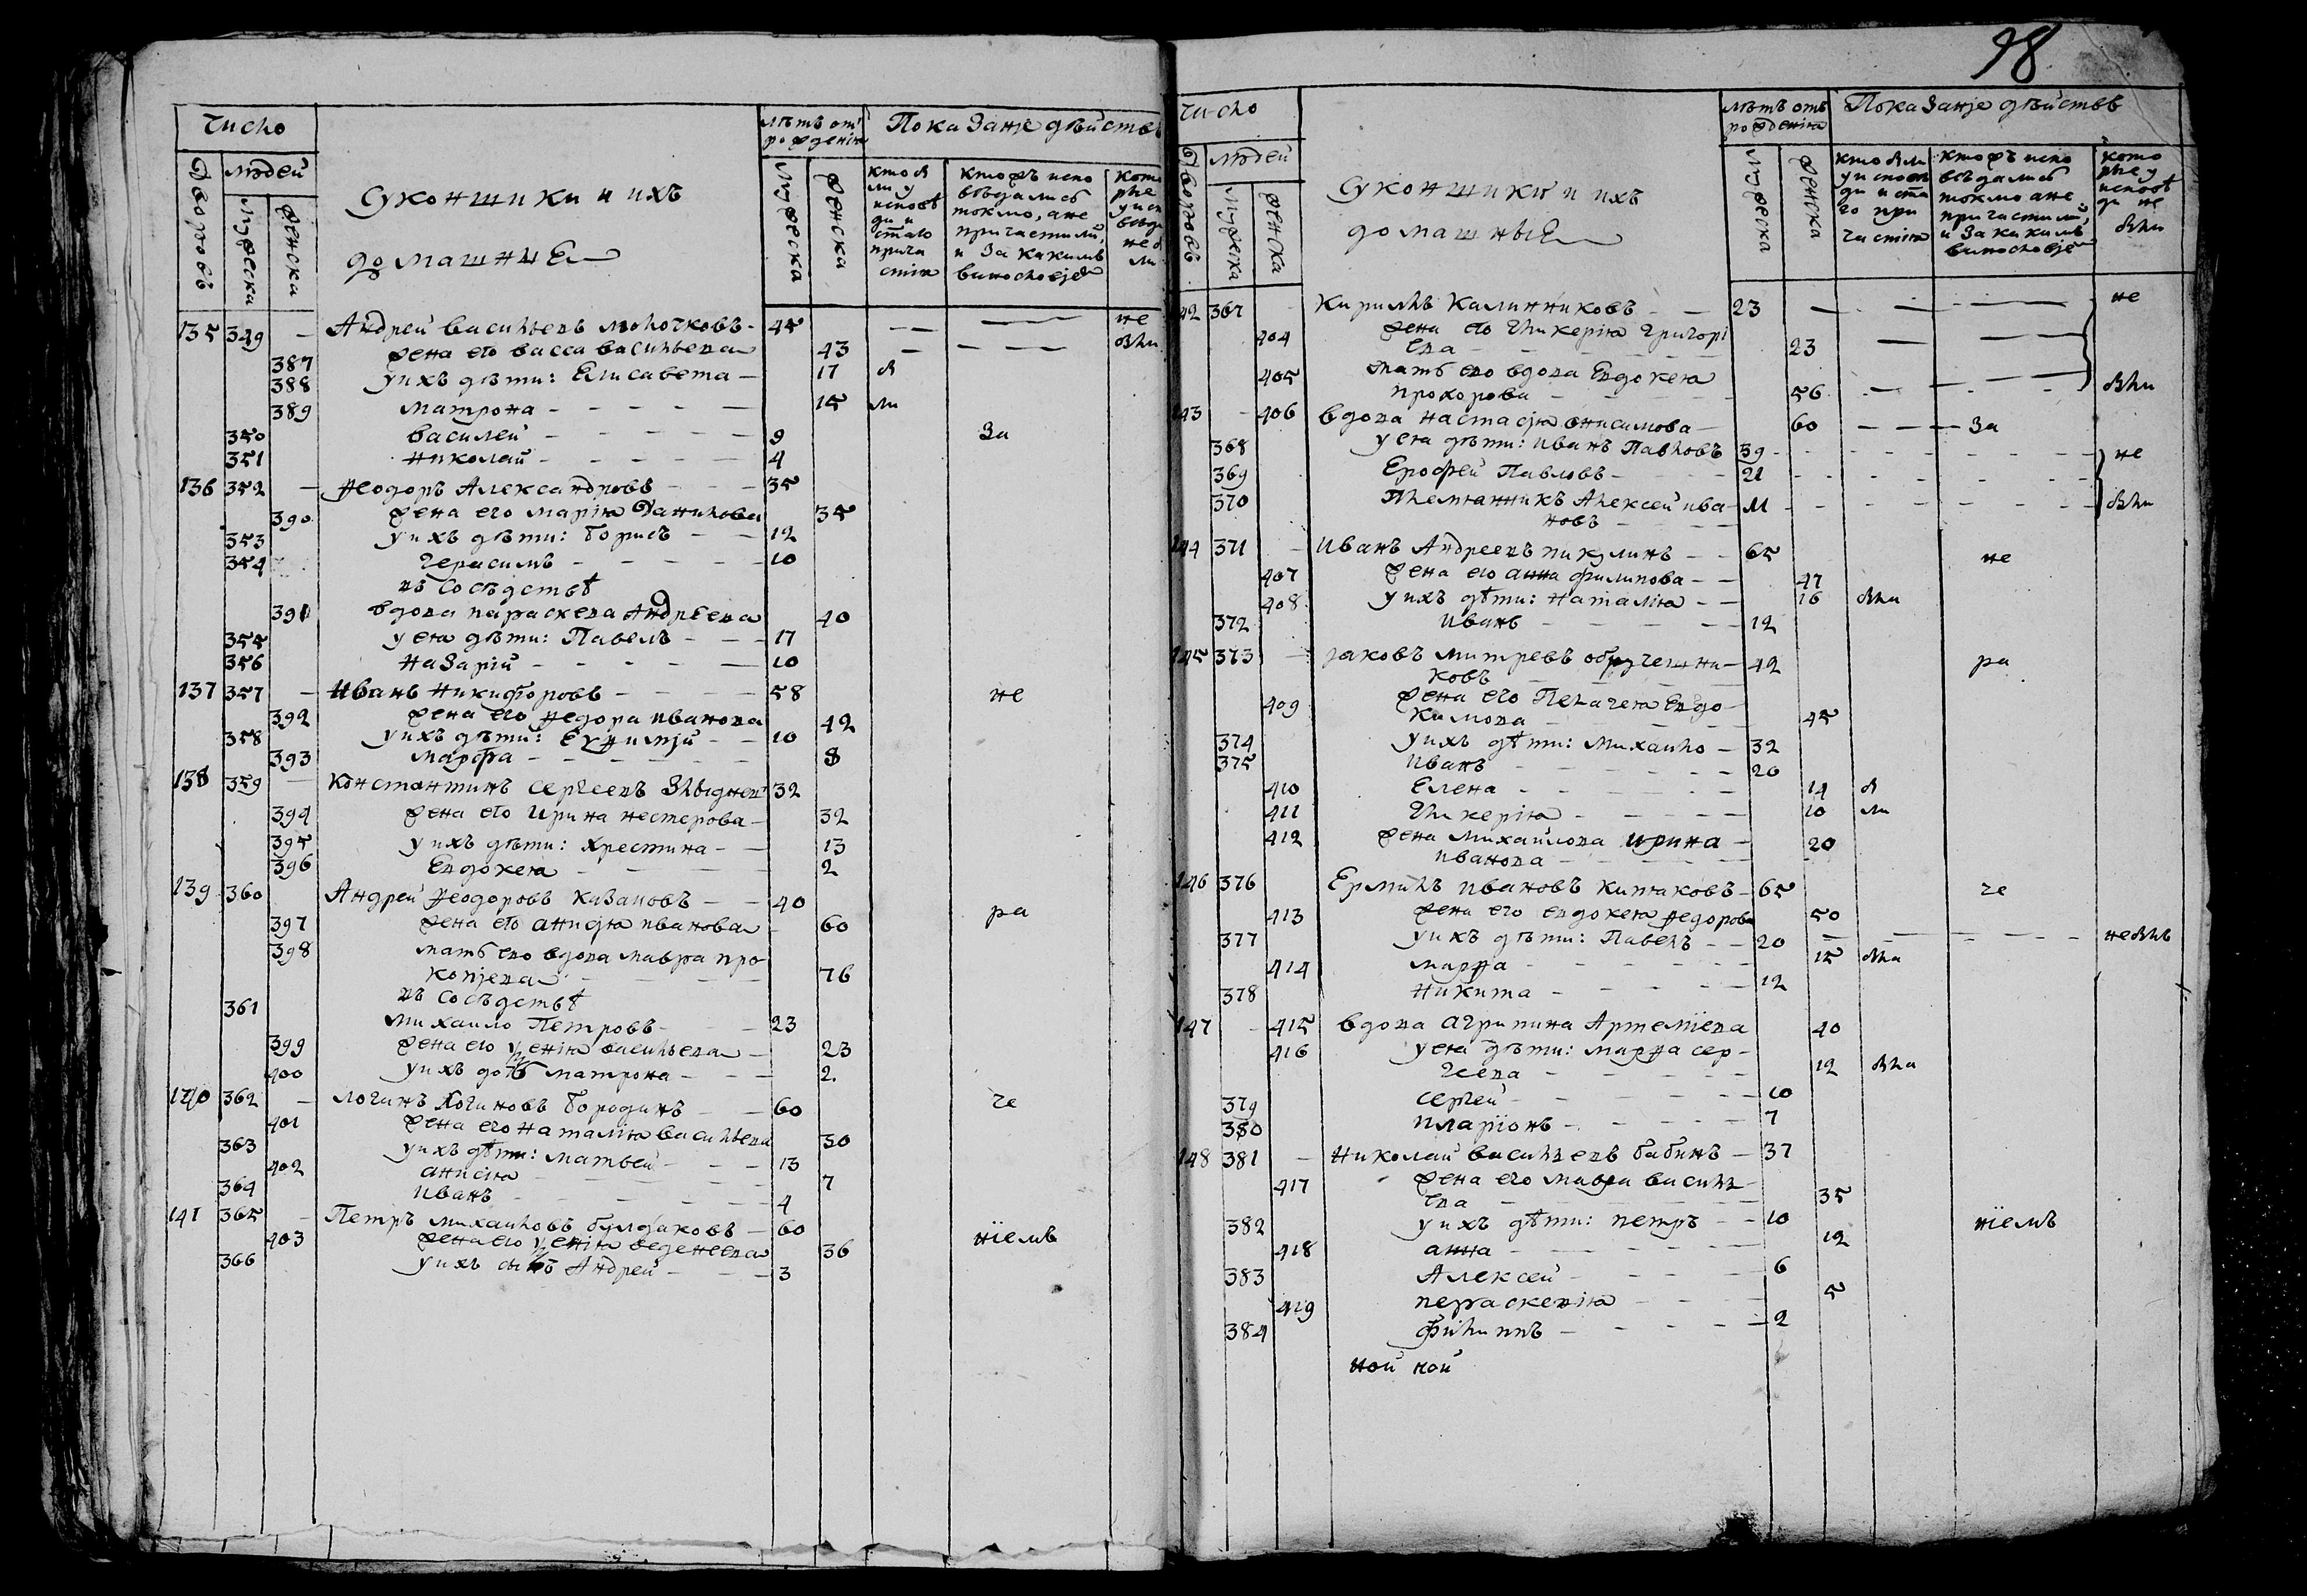 98
число
людей
дворовъ
мужеска
женска
суконщики и ихъ
домашные
лѣтъ от
рожденія
мужеска
женска
Показанiе дѣйствъ
кто бы
ли у
исповѣ
ди и
стаго
прича
стія
кто жъ испо
вѣдались
токмо, а не
причастили,
и за какимъ
винословіем
кото
рые
у исп
вѣди
не б
ли
135 349 — Андрей Васильевъ Молочковъ — 45 не
387 жена его Васса Васильева 43 были
388 у ихъ дѣти: Елисавета — 17 бы
389 матрона — 15 ли
350 Василей — 9 за
351 Николай — 4
136 352 — Ѳеодоръ Александровъ — 35
390 жена его марія Данилова 35
353 у ихъ дѣти: борисъ — 12
354 герасимъ — 10
въ сосѣдствѣ
391 вдова параскева Андреева 40
355 у ея дѣти: Павелъ — 17
356 Назарій — 10
137 357 — Иванъ Никифоровъ — 58 не
392 жена его Ѳедора иванова 42
358 у ихъ дѣти: Еѵѳимій — 10
393 марфа — 8
138 359 — Константинъ Сергеевъ 32
394 жена его Ирина нестерова — 32
395 у ихъ дѣти: Хрестина — 13
396 Евдокея — 2
139 360 Андрей Ѳеодоровъ Казановъ — 40 ра
397 жена его анисія иванова 60
398 мать ево вдова мавра про
копіева — 76
въ сосѣдствѣ
361 михаило Петровъ — 23
399 жена его Ѵсенія васильева — 23
400 у ихъ дочь матрона — 2
140 362 — Логинъ Логиновъ бородинъ — 60 че
401 жена его наталія васильева 30
363 у ихъ дѣти: матвей — 13
402 анисія — 7
364 иванъ — 4
141 365 — Петръ михаиловъ булдаковъ — 60
403 жена его Ѵсенія веденеева 36 нїемъ
366 у ихъ сынъ Андрей — 3
число
людей
дворовъ
мужеска
женска
суконщики и ихъ
домашные
лѣтъ отъ
рожденія
мужеска
женска
Показанiе дѣйствъ
кто были
у исповѣ
ди и ста
го при
частія
кто жъ испо
вѣдались
токмо а не
причастили,
и за какимъ
винословіе
кото
рые у
исповѣ
ди не
были
142 367 — Кирилъ Калинниковъ — 23 не
404 жена его Гликерія григорі
ева — 23
405 мать ево вдова Евдокея
прохорова — 56 были
143 — 406 вдова Настасія онисимова — 60 — за
368 у ея дѣти: иванъ Павловъ 39 не
369 Ерофей Павловъ — 21
370 Племянникъ Алексей ива— 11 были
новъ
144 371 — Иванъ Андреевъ пикулинъ — 65 не
407 жена его анна филипова — 47
408 у ихъ дѣти: Наталія — 16 была
372 иванъ — 12
145 373 — Іаковъ митревъ обручешни— 42 ра
ковъ
409 жена его Пелагея Евдо—
кимова — 45
374 у ихъ дѣти: михаило — 32
375 иванъ — 20
410 Елена — 14 бы
411 Гликерія — 10 ли
412 жена михаилова ирина — 20
иванова
146 376 Ермилъ ивановъ Китаковъ — 65 че
413 жена его евдокея Ѳедорова 50
377 у ихъ дѣти: Павелъ — 20 не былъ
414 марѳа — 15 была
378 никита — 12
147 — 415 вдова агрипина Артемїева 40
416 у ея дѣти: марѳа сер—
геева — 12 была
379 сергей — 10
380 иларїонъ — 7
148 381 — Николай васильевъ бабинъ — 37
417 жена его мавра василь
ева — 35
382 у ихъ дѣти: петръ — 10 нїемъ
418 анна — 12
383 Алексей — 6
419 пераскевія — 5
384 филиппъ — 2
ной кой